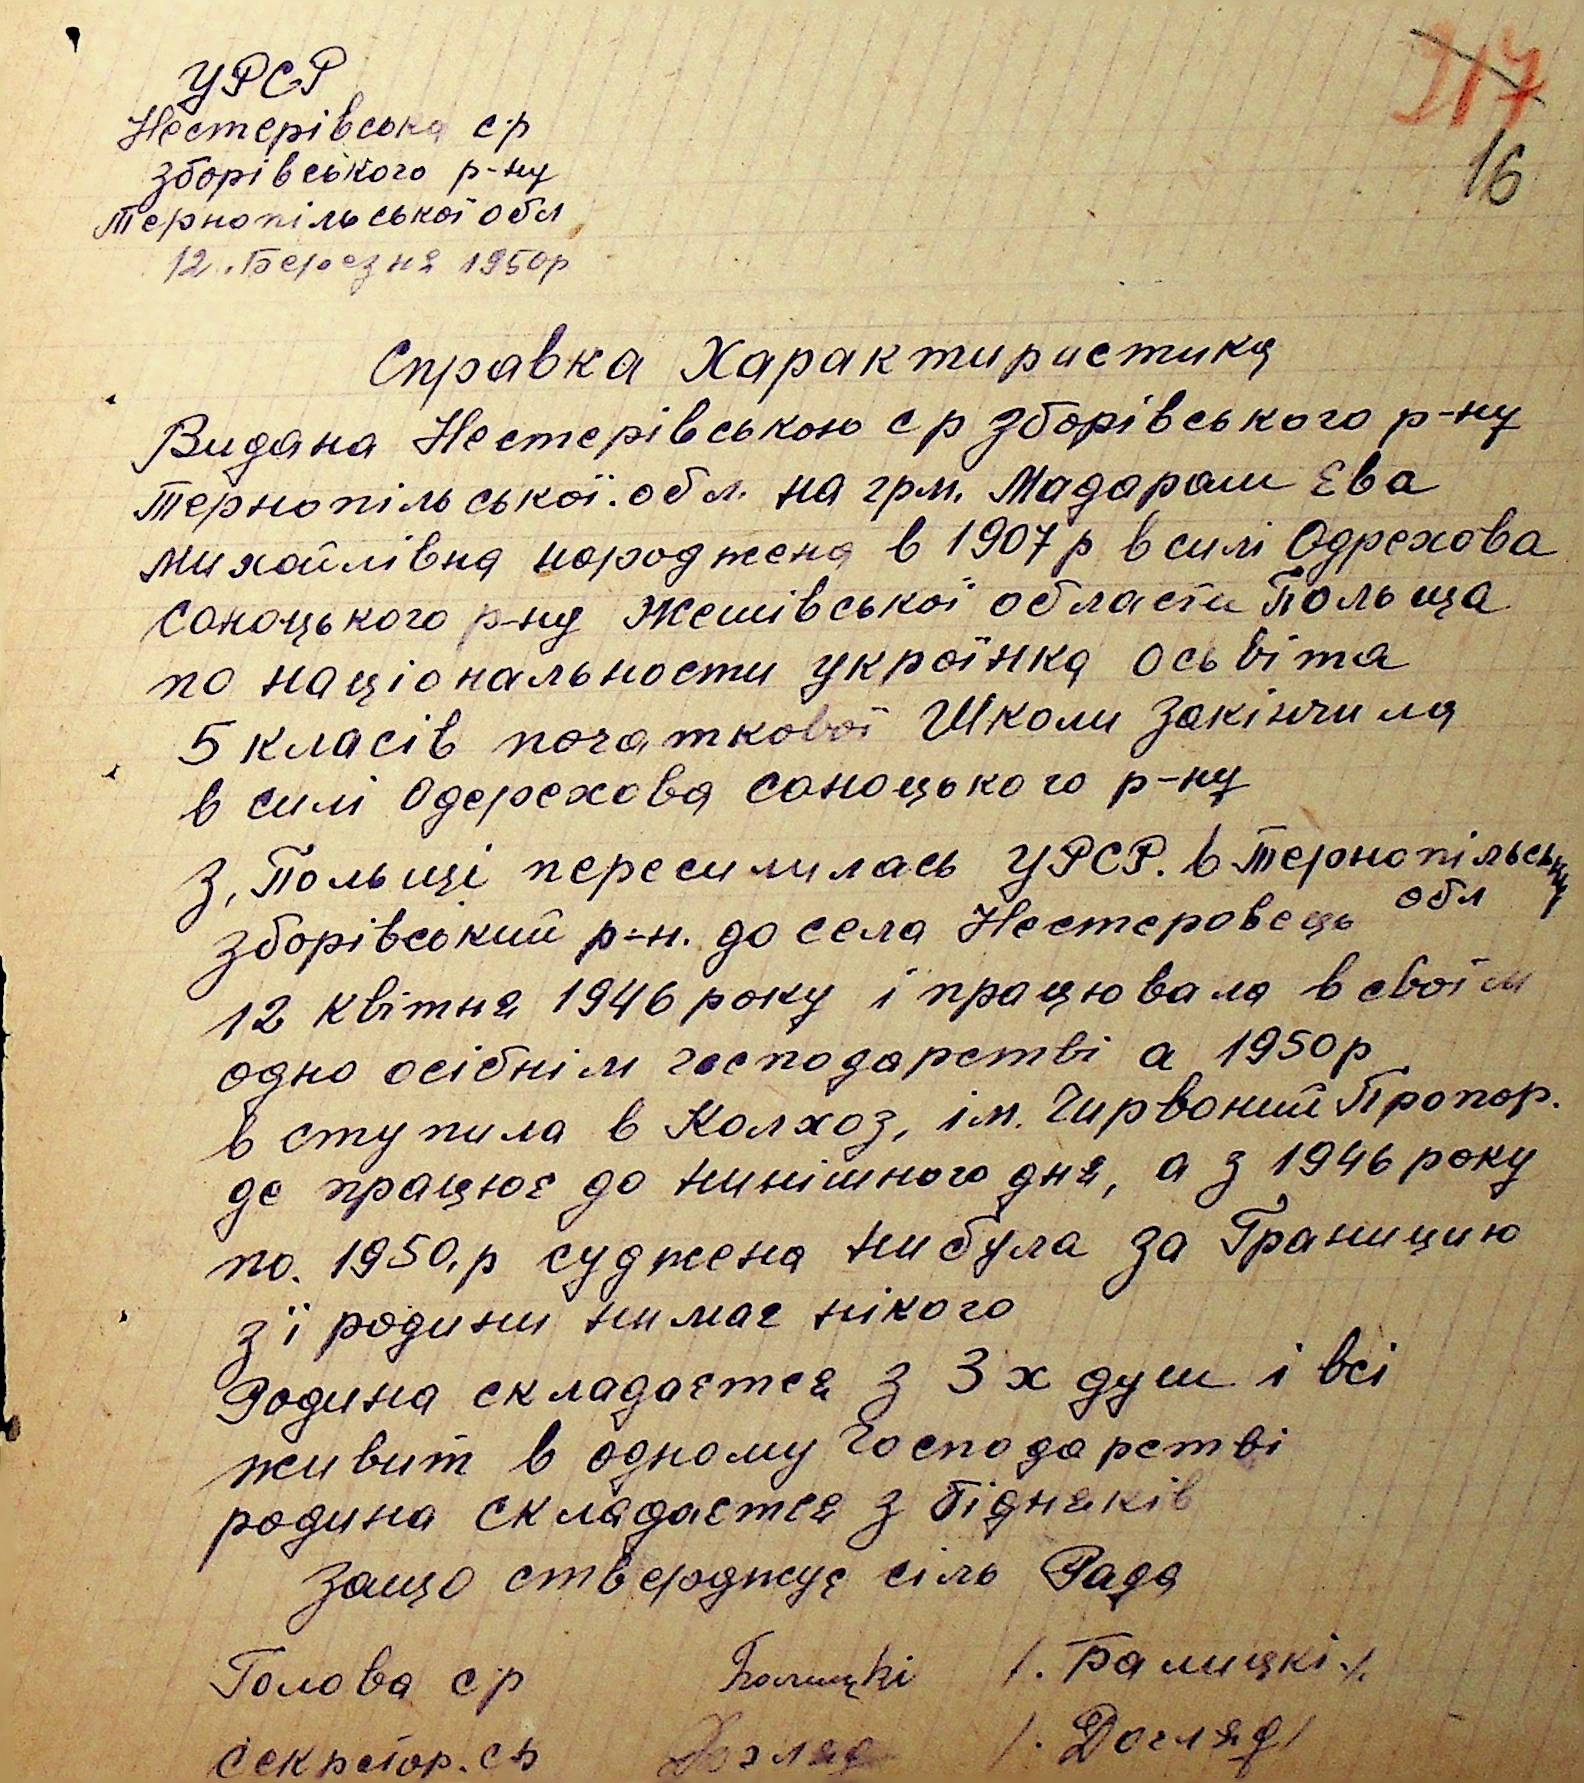 УРСР
217
Нестерівська с.р
16
зборівського р-ну
Тернопільської обл
12. Березня 1950р
Справка Характиристика
Видана Нестерівською с р зборівського р-ну
Тернопільської. обл. на грм. Мадараш Ева
михайлівна народжена в 1907 р в силі Одрехова
саноцького р-ну Жешівської области Польща
по національности українка осьвіта
5 класів початкової Школи закінчила
в силі Одерехова саноцького р-ну
з, Польщі пересилилась УРСР. в Тернопільську
обл
зборівський р-н. до села Нестеровець
12 квітня 1946 року і працювала в своїм
одно осібнім господарстві а 1950р
в ступила в Колхоз, ім. Чирвоний Прапор.
де працює до нинішного дня, а з 1946 року
по. 1950.р суджена ни була за Границию
з ї родини нимає нікого
Родина складаєтся з 3 х душ і всі
живит в одному господарстві
родина складаєтся з бідняків
защо стверджує сіль Рада
Голова с.р Балицкі /. Балицкі./.
секретор. с.р Догляд /. Догляд/